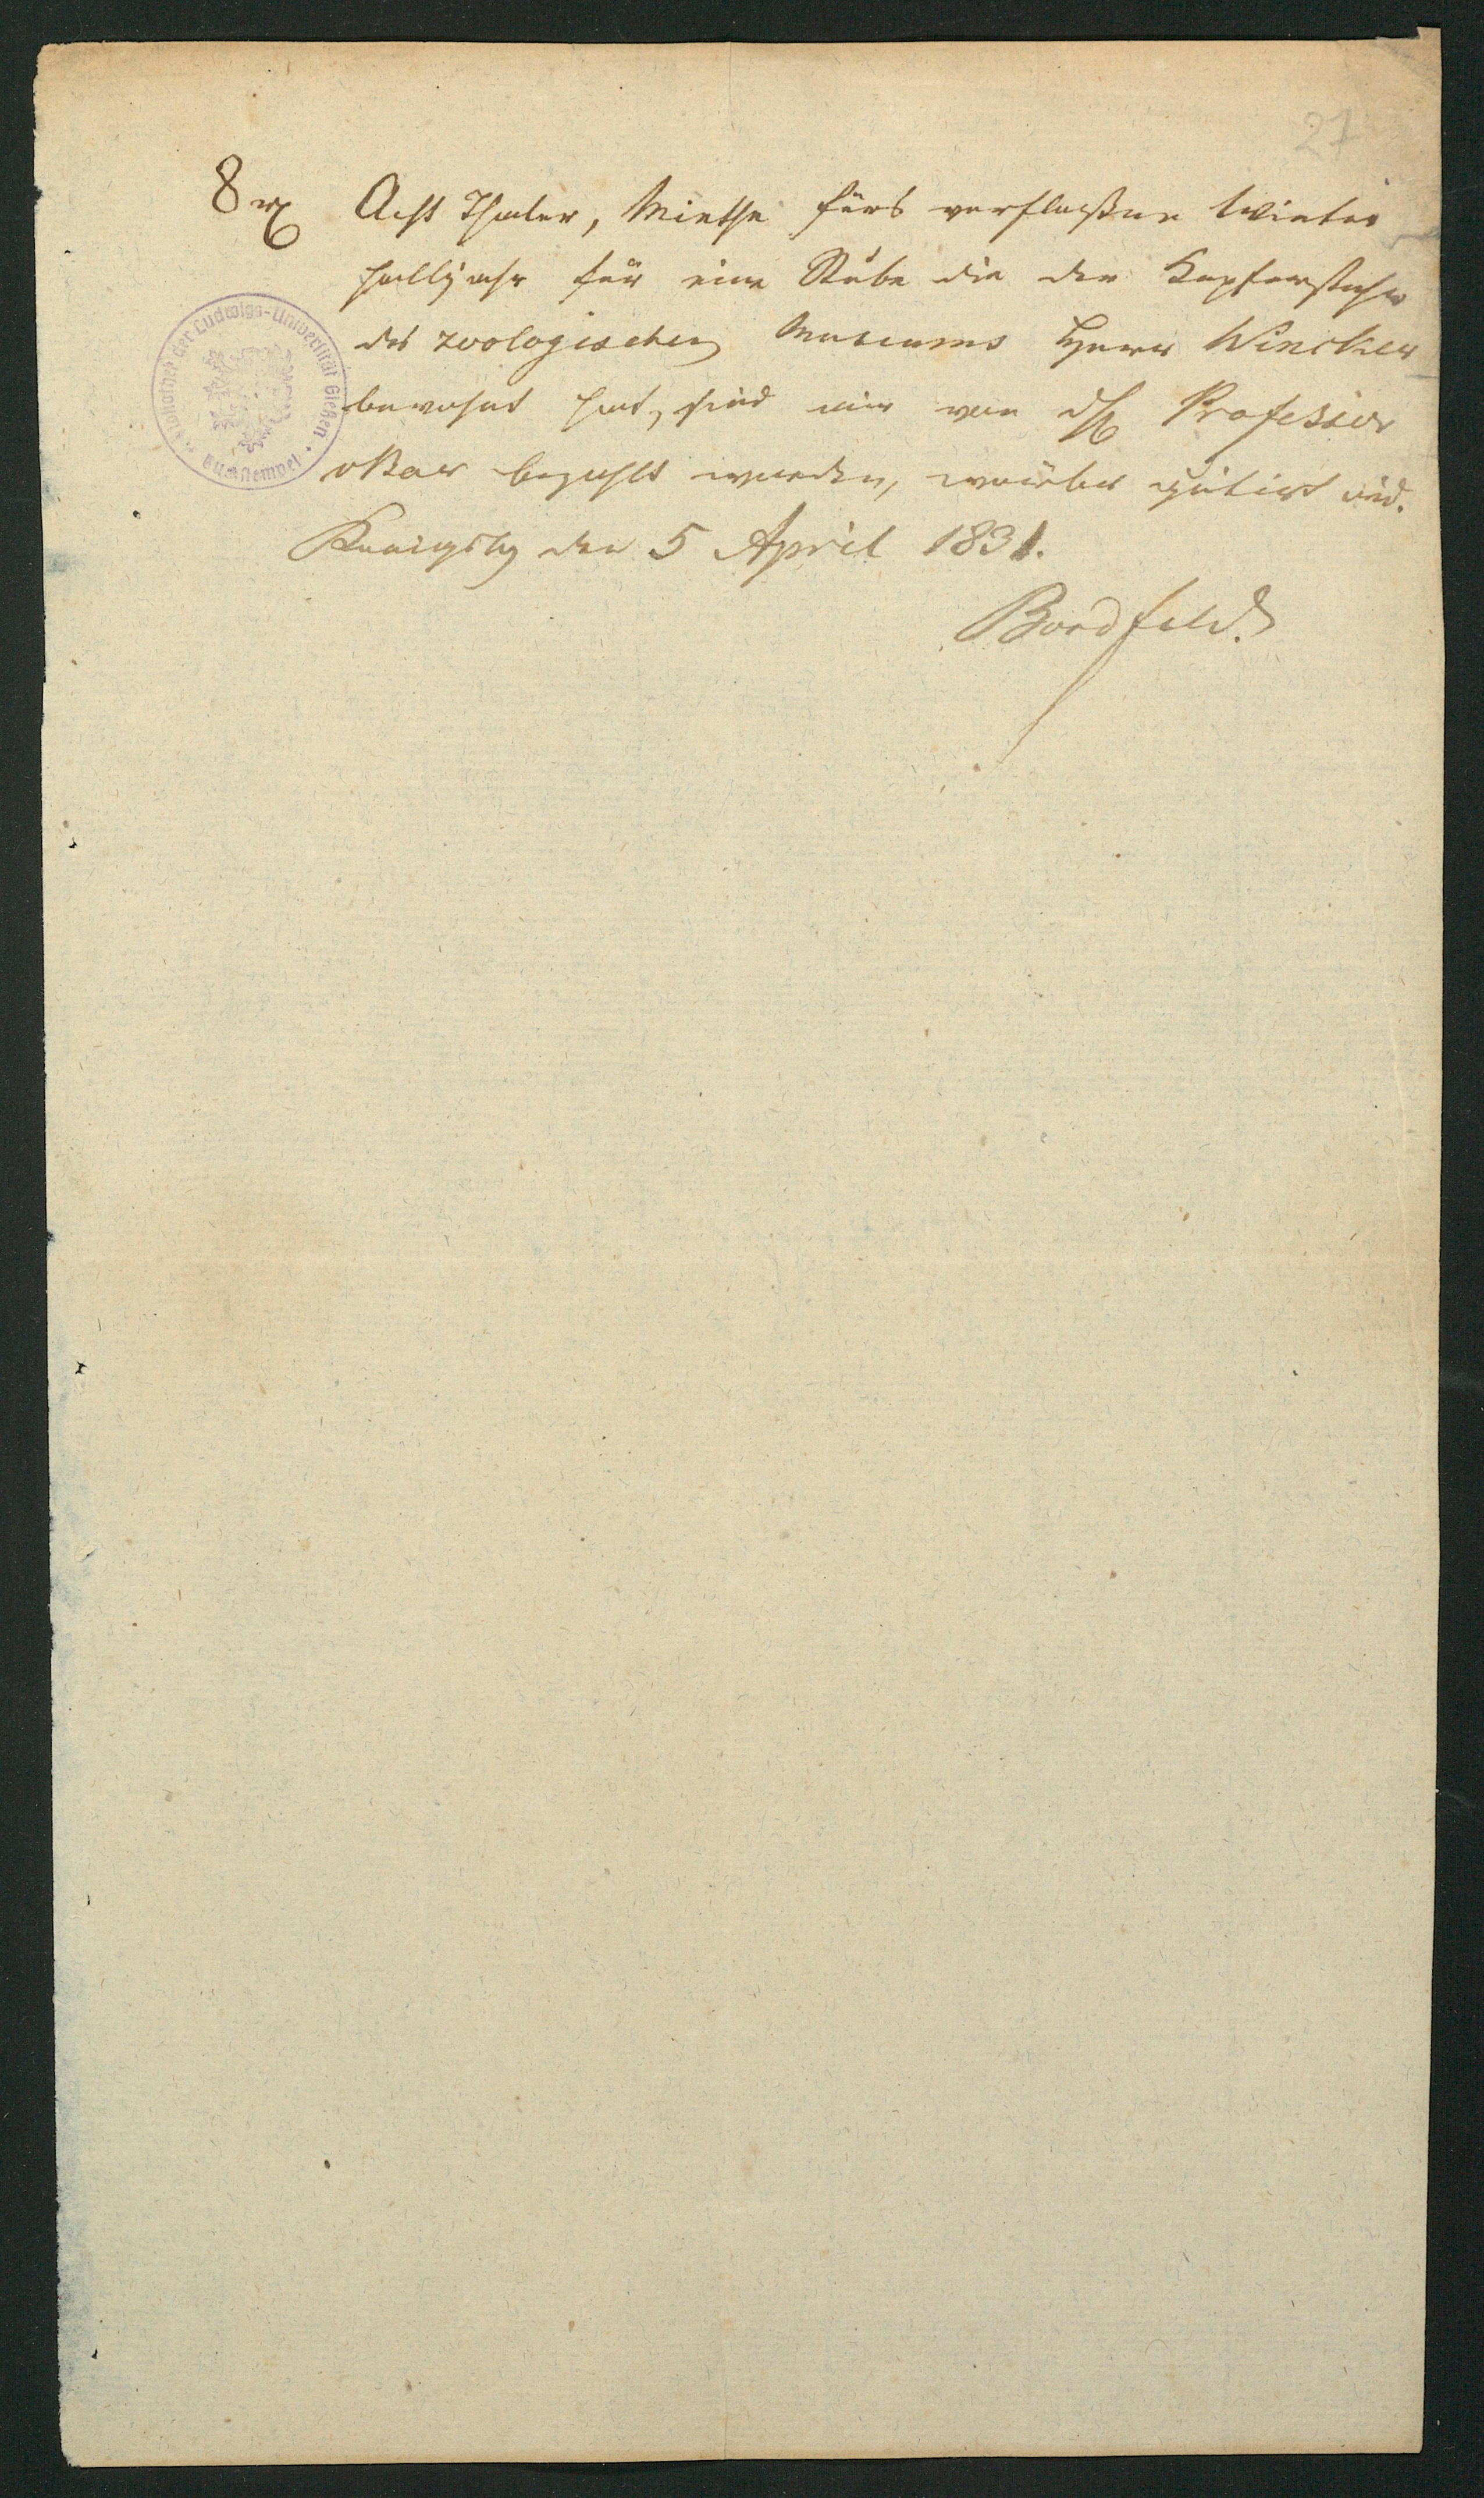 27
8 rℓ Acht Thaler, Miethe fürs verfloßene Winter
halbjahr für eine Stube die der Kupferstecher
des zoologischen Museums Herr Wincker
bewohnt hat, sind mir von Professor
v Baer bezahlt worden, worüber quitirt wird.
Koenigsbg den 5 April 1831.
Bordfeld.
Bibliothek der Ludwigs-Universität Gießen